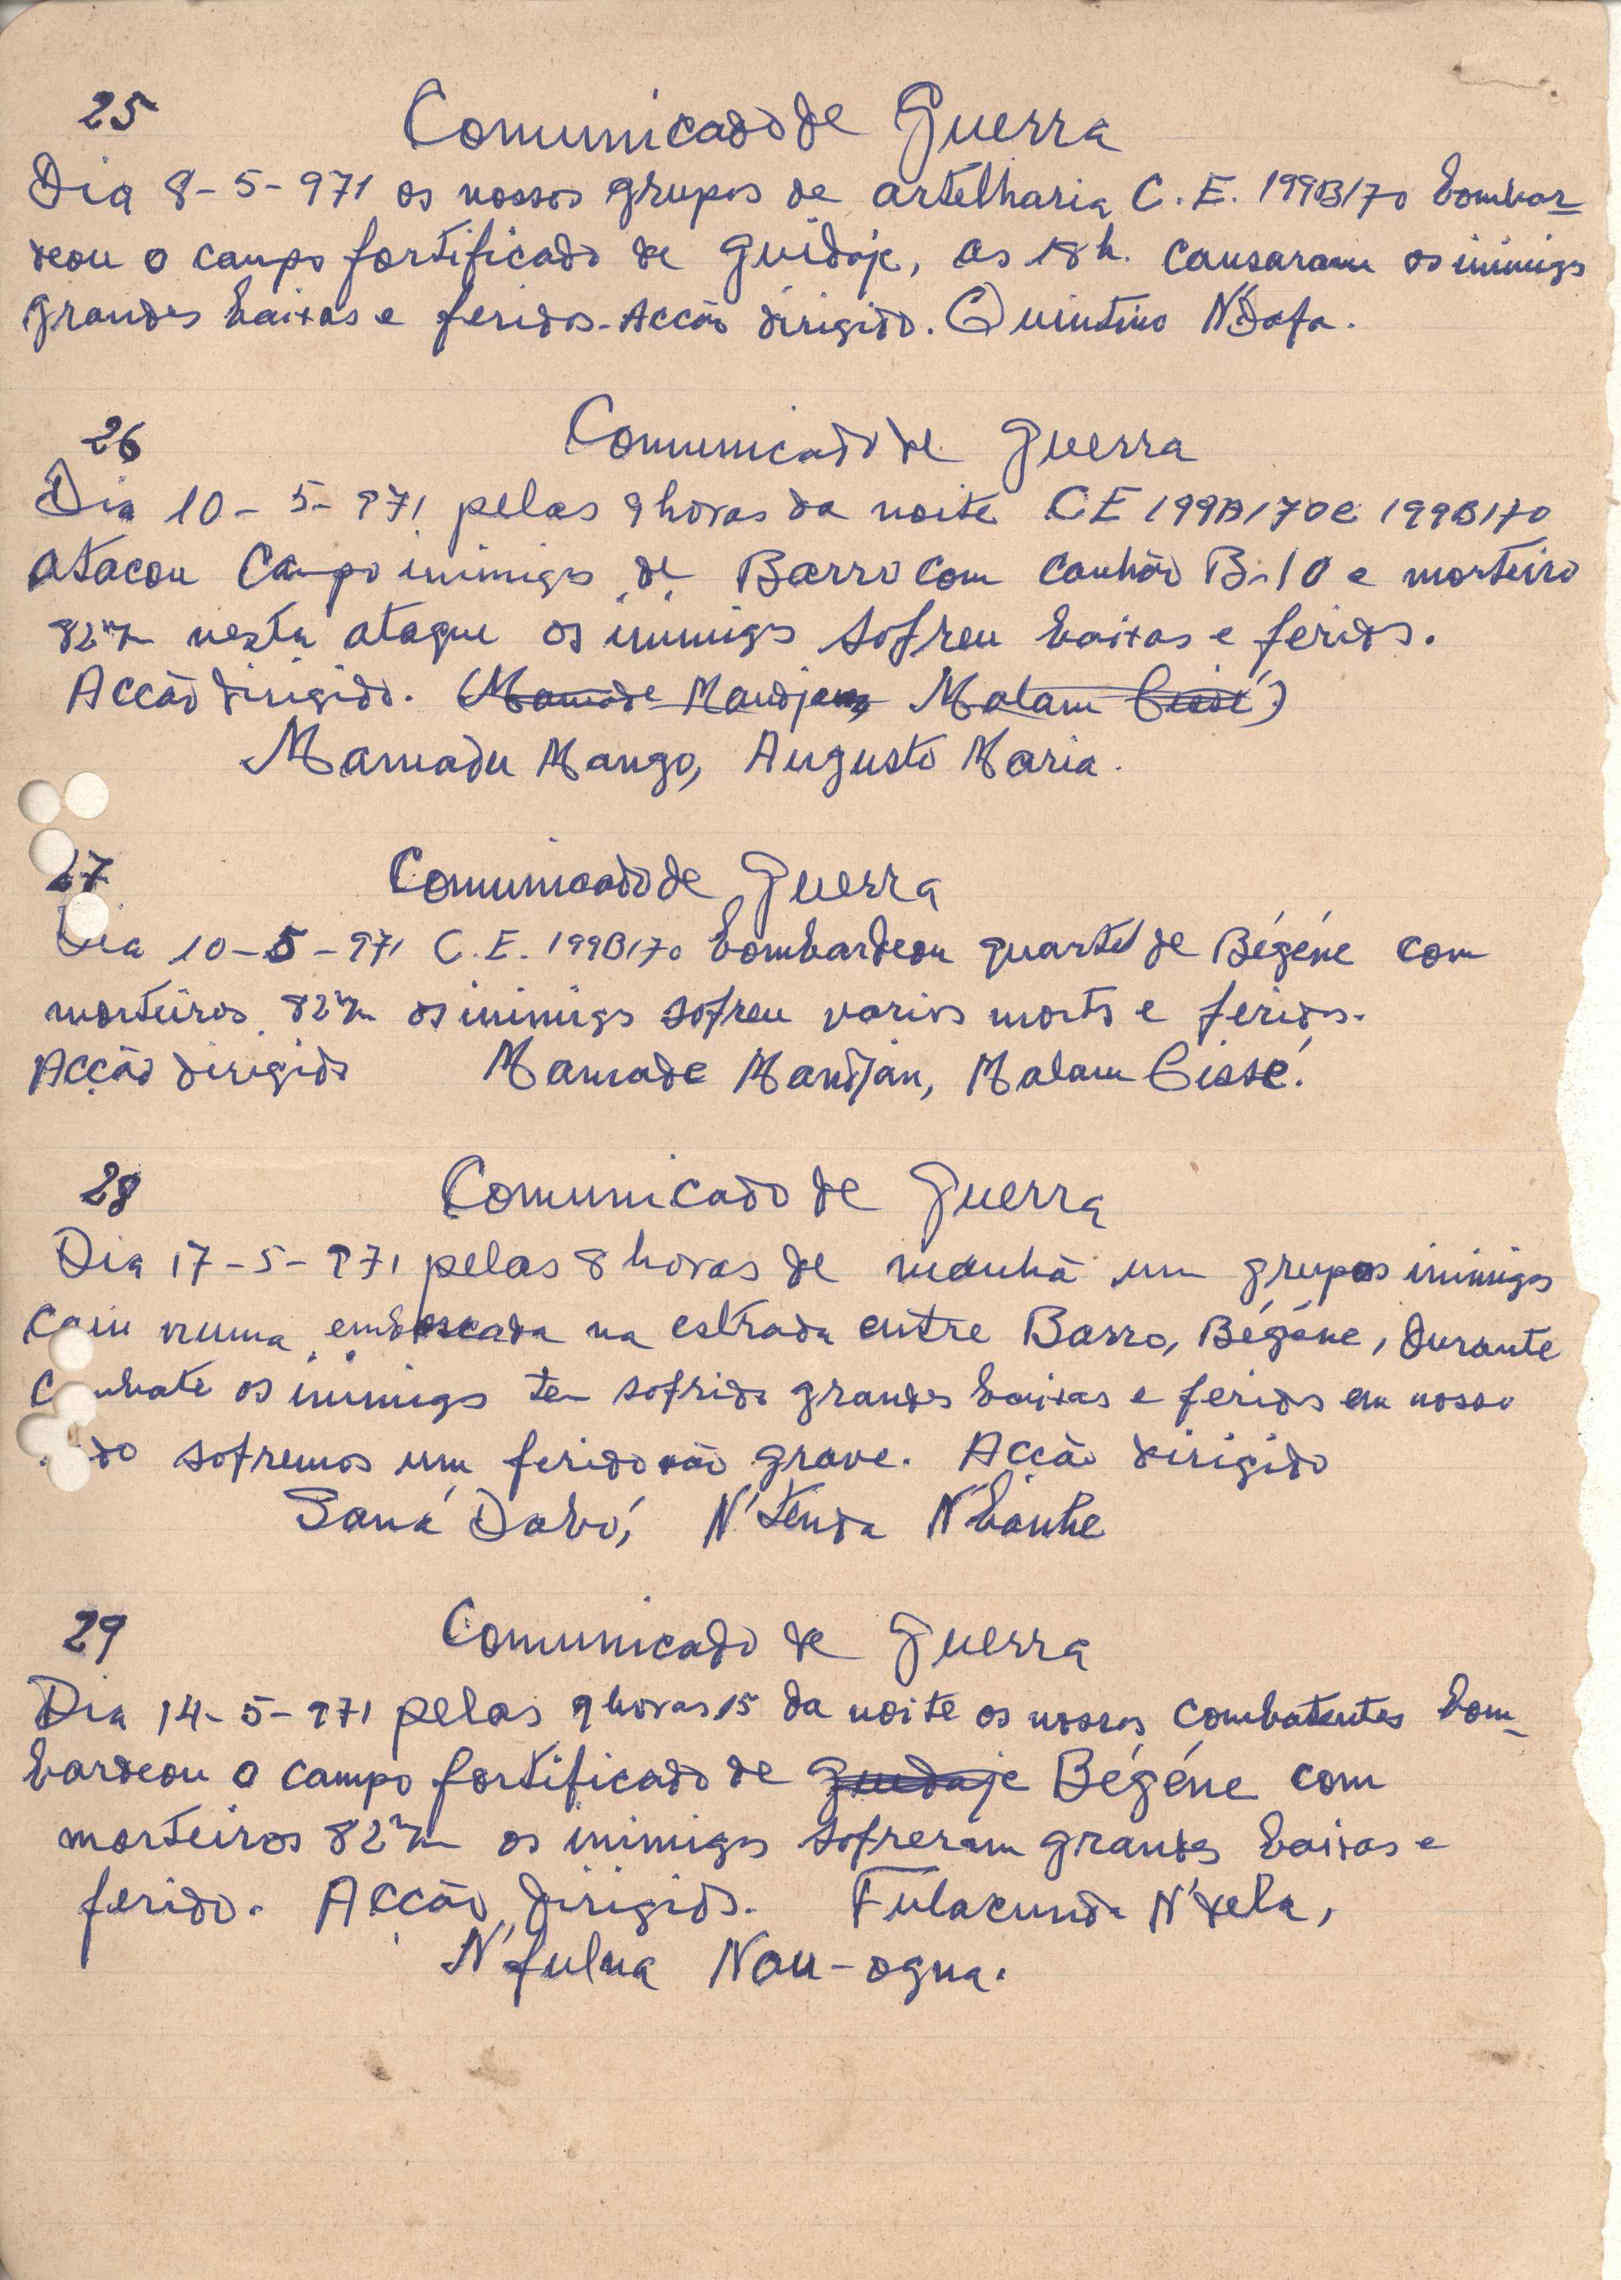 25 Comunicado de Guerra
Dia 8-5-971 os nossos grupos de artelharia C.E. 199B/70 bombar-
deou o campo fortificado de Guidaje, as 18h. causaram os inimigos
grandes baixas e feridos. Acção dirigido. Quintino N'Dafa.
26 Comunicado de Guerra
Dia 10-5-971 pelas 9 horas da noite CE 199A/70 e 199B/70
atacou Campo inimigos de Barro com canhão B-10 e morteiro
82m/m nesta ataque os inimigos sofreu baixas e feridos.
Acção dirigido. (Mamade Mandjam Malam Cissé)
Mamadu Mango, Augusto Maria.
27 Comunicado de Guerra
Dia 10-5-971 C.E. 199B/70 bombardeou quartel de Bégéne com
morteiros 82m/m os inimigos sofreu varios morts e feridos.
Acção dirigido Mamade Mandjan, Malam Cissé.
28 Comunicado de Guerra
Dia 17-5-971 pelas 8 horas de manhã um grupos inimigos
caiu numa emboscada na estrada entre Barro, Bégéne, durante
os inimigos tem sofrido grandes baixas e feridos em nosso
sofremos um ferido não grave. Acção dirigido
Saná Dabó, N'tenda N'banhe
29 Comunicado de Guerra
Dia 14-5-971 pelas 9 horas 15 da noite os nossos combatentes bom-
bardeou o campo fortificado de Guedaje Bégéne com
morteiros 82m/m os inimigos sofreram grandes baixas e
ferido. Acção dirigido. Fulacunda N'dela,
N'fulna Nau-ogna.